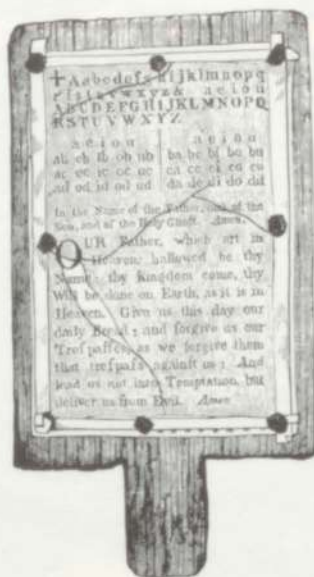 ✢Aabcdefghijklmnopq
rſstuvwxyz& aeiou
ABCDEFGHIJKLMNOPQ
RSTUVWXYZ.
a e i o u a e i o u
ab eb ib ob ub ba be bi bo bu
ac ec ic oc uc ca ce ci co cu
ad ed id od ud da de di do du
In the Name of the Father, and of the
Son, and of the Holy Ghoſt. Amen.
OUR Father, which art in
Heaven, hallowed be thy
Name; thy Kingdom come, thy
Will be done on Earth, as it is in
Heaven. Give us this day our
daily Bread; and forgive us our
Treſpaſſes, as we forgive them
that treſpaſs againſt us: And
lead us not into Temptation, but
deliver us from Evil. Amen.